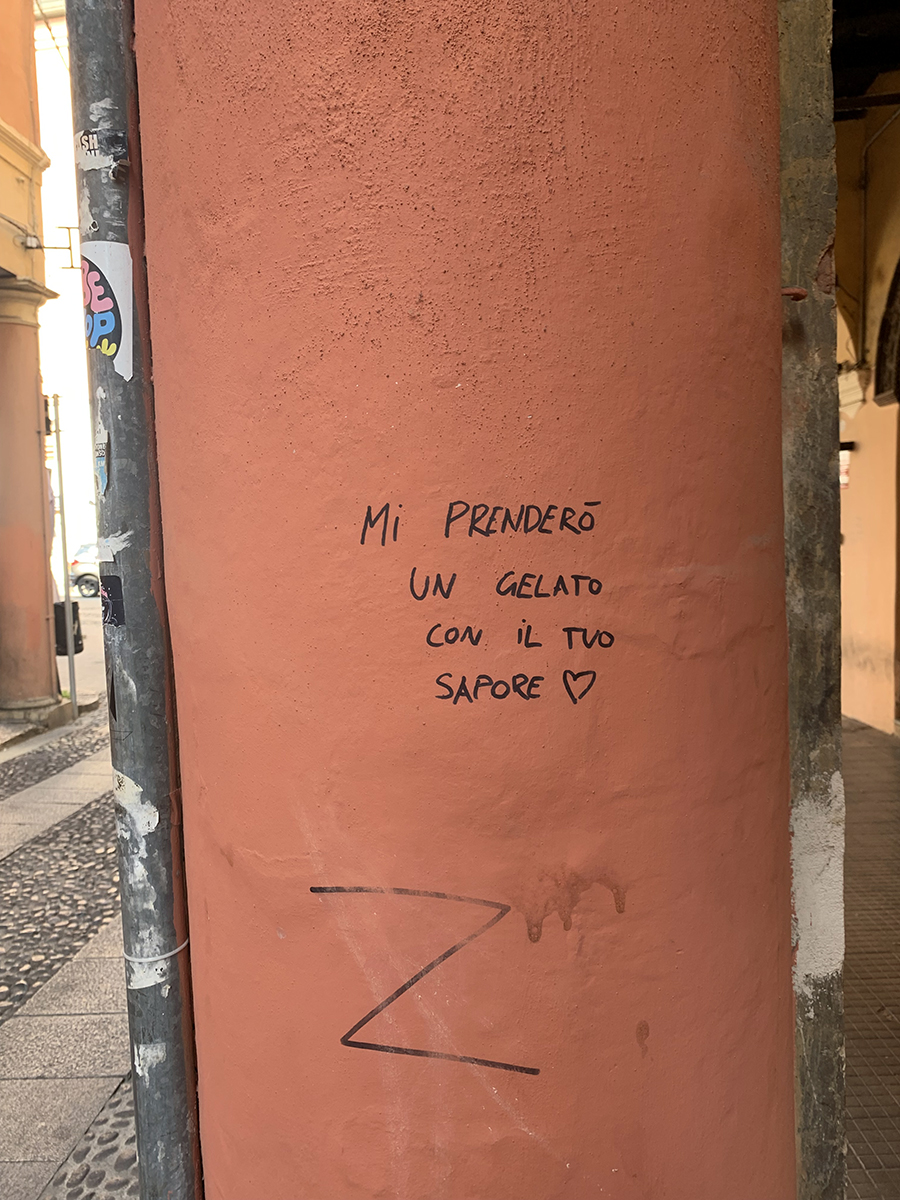 Mi PRENDERÒ
UN GELATO
CON iL TUO
SAPORE ♡
Z